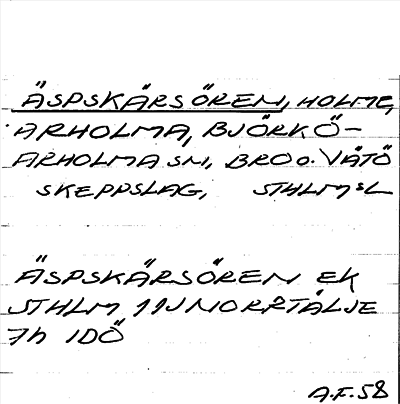 ÄSPSKÄRSÖREN, HOLME,
ARHOLMA, BJÖRKÖ-
ARHOLMA SN, BRO o. VÄTÖ
SKEPPSLAG, STHLMSL
ÄSPSKÄRSÖREN EK
STHLM 11J NORRTÄLJE
7h IDÖ
A.F. 58